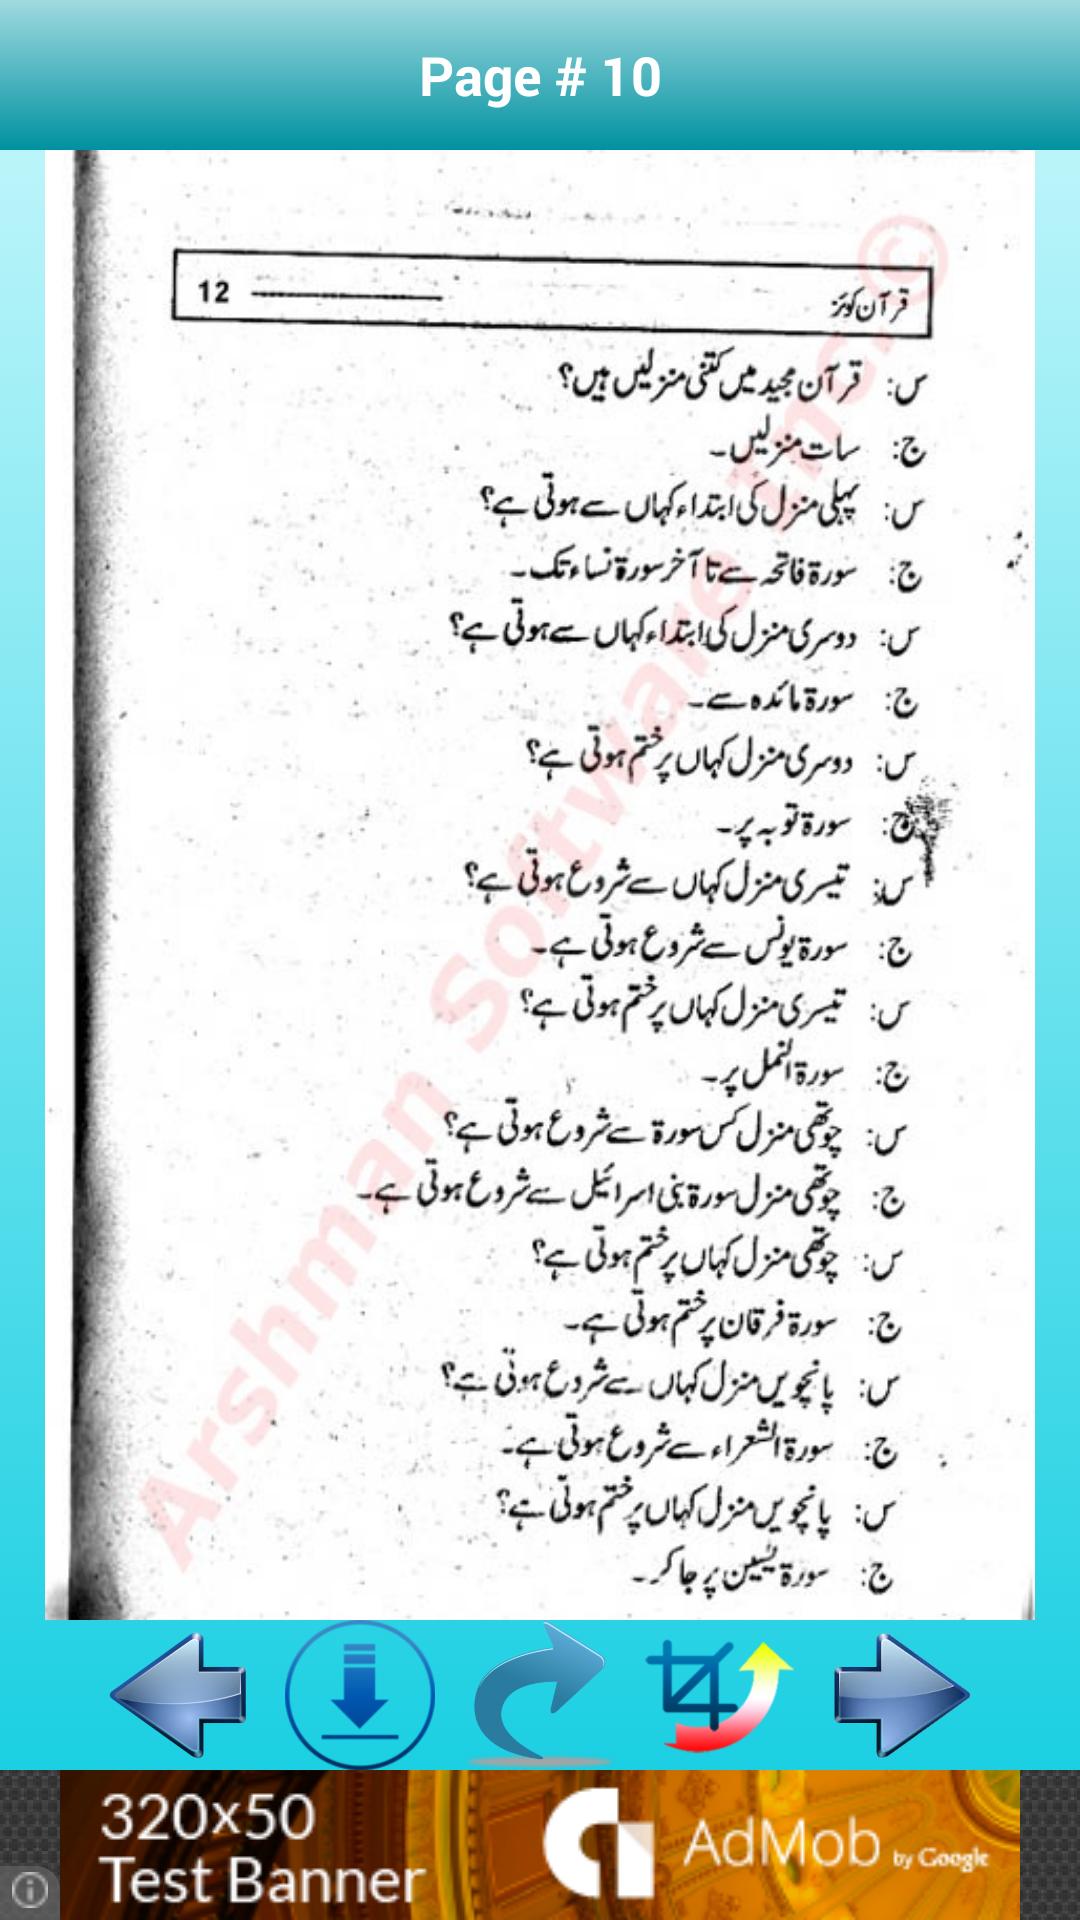 Page # 10
قرآن کوئز ---------------- 12
س: قرآن مجید میں کتنی منزلیں ہیں؟
ج: سات منزلیں۔
س: پہلی منزل کی ابتداء کہاں سے ہوتی ہے؟
ج: سورۃ فاتحہ سے تا آخر سورۃ نساء تک۔
س: دوسری منزل کی ابتداء کہاں سے ہوتی ہے؟
ج: سورۃ مائدہ سے۔
س: دوسری منزل کہاں پر ختم ہوتی ہے؟
ج: سورۃ توبہ پر۔
س: تیسری منزل کہاں سے شروع ہوتی ہے؟
ج: سورۃ یونس سے شروع ہوتی ہے۔
س: تیسری منزل کہاں پر ختم ہوتی ہے؟
ج: سورۃ النمل پر۔
س: چوتھی منزل کس سورۃ سے شروع ہوتی ہے؟
ج: چوتھی منزل سورۃ بنی اسرائیل سے شروع ہوتی ہے۔
س: چوتھی منزل کہاں پر ختم ہوتی ہے؟
ج: سورۃ فرقان پر ختم ہوتی ہے۔
س: پانچویں منزل کہاں سے شروع ہوتی ہے؟
ج: سورۃ الشعراء سے شروع ہوتی ہے۔
س: پانچویں منزل کہاں پر ختم ہوتی ہے؟
ج: سورۃ یٰسین پر جا کر۔
Arshman Software Inc. ©
320x50
Test Banner
AdMob by Google